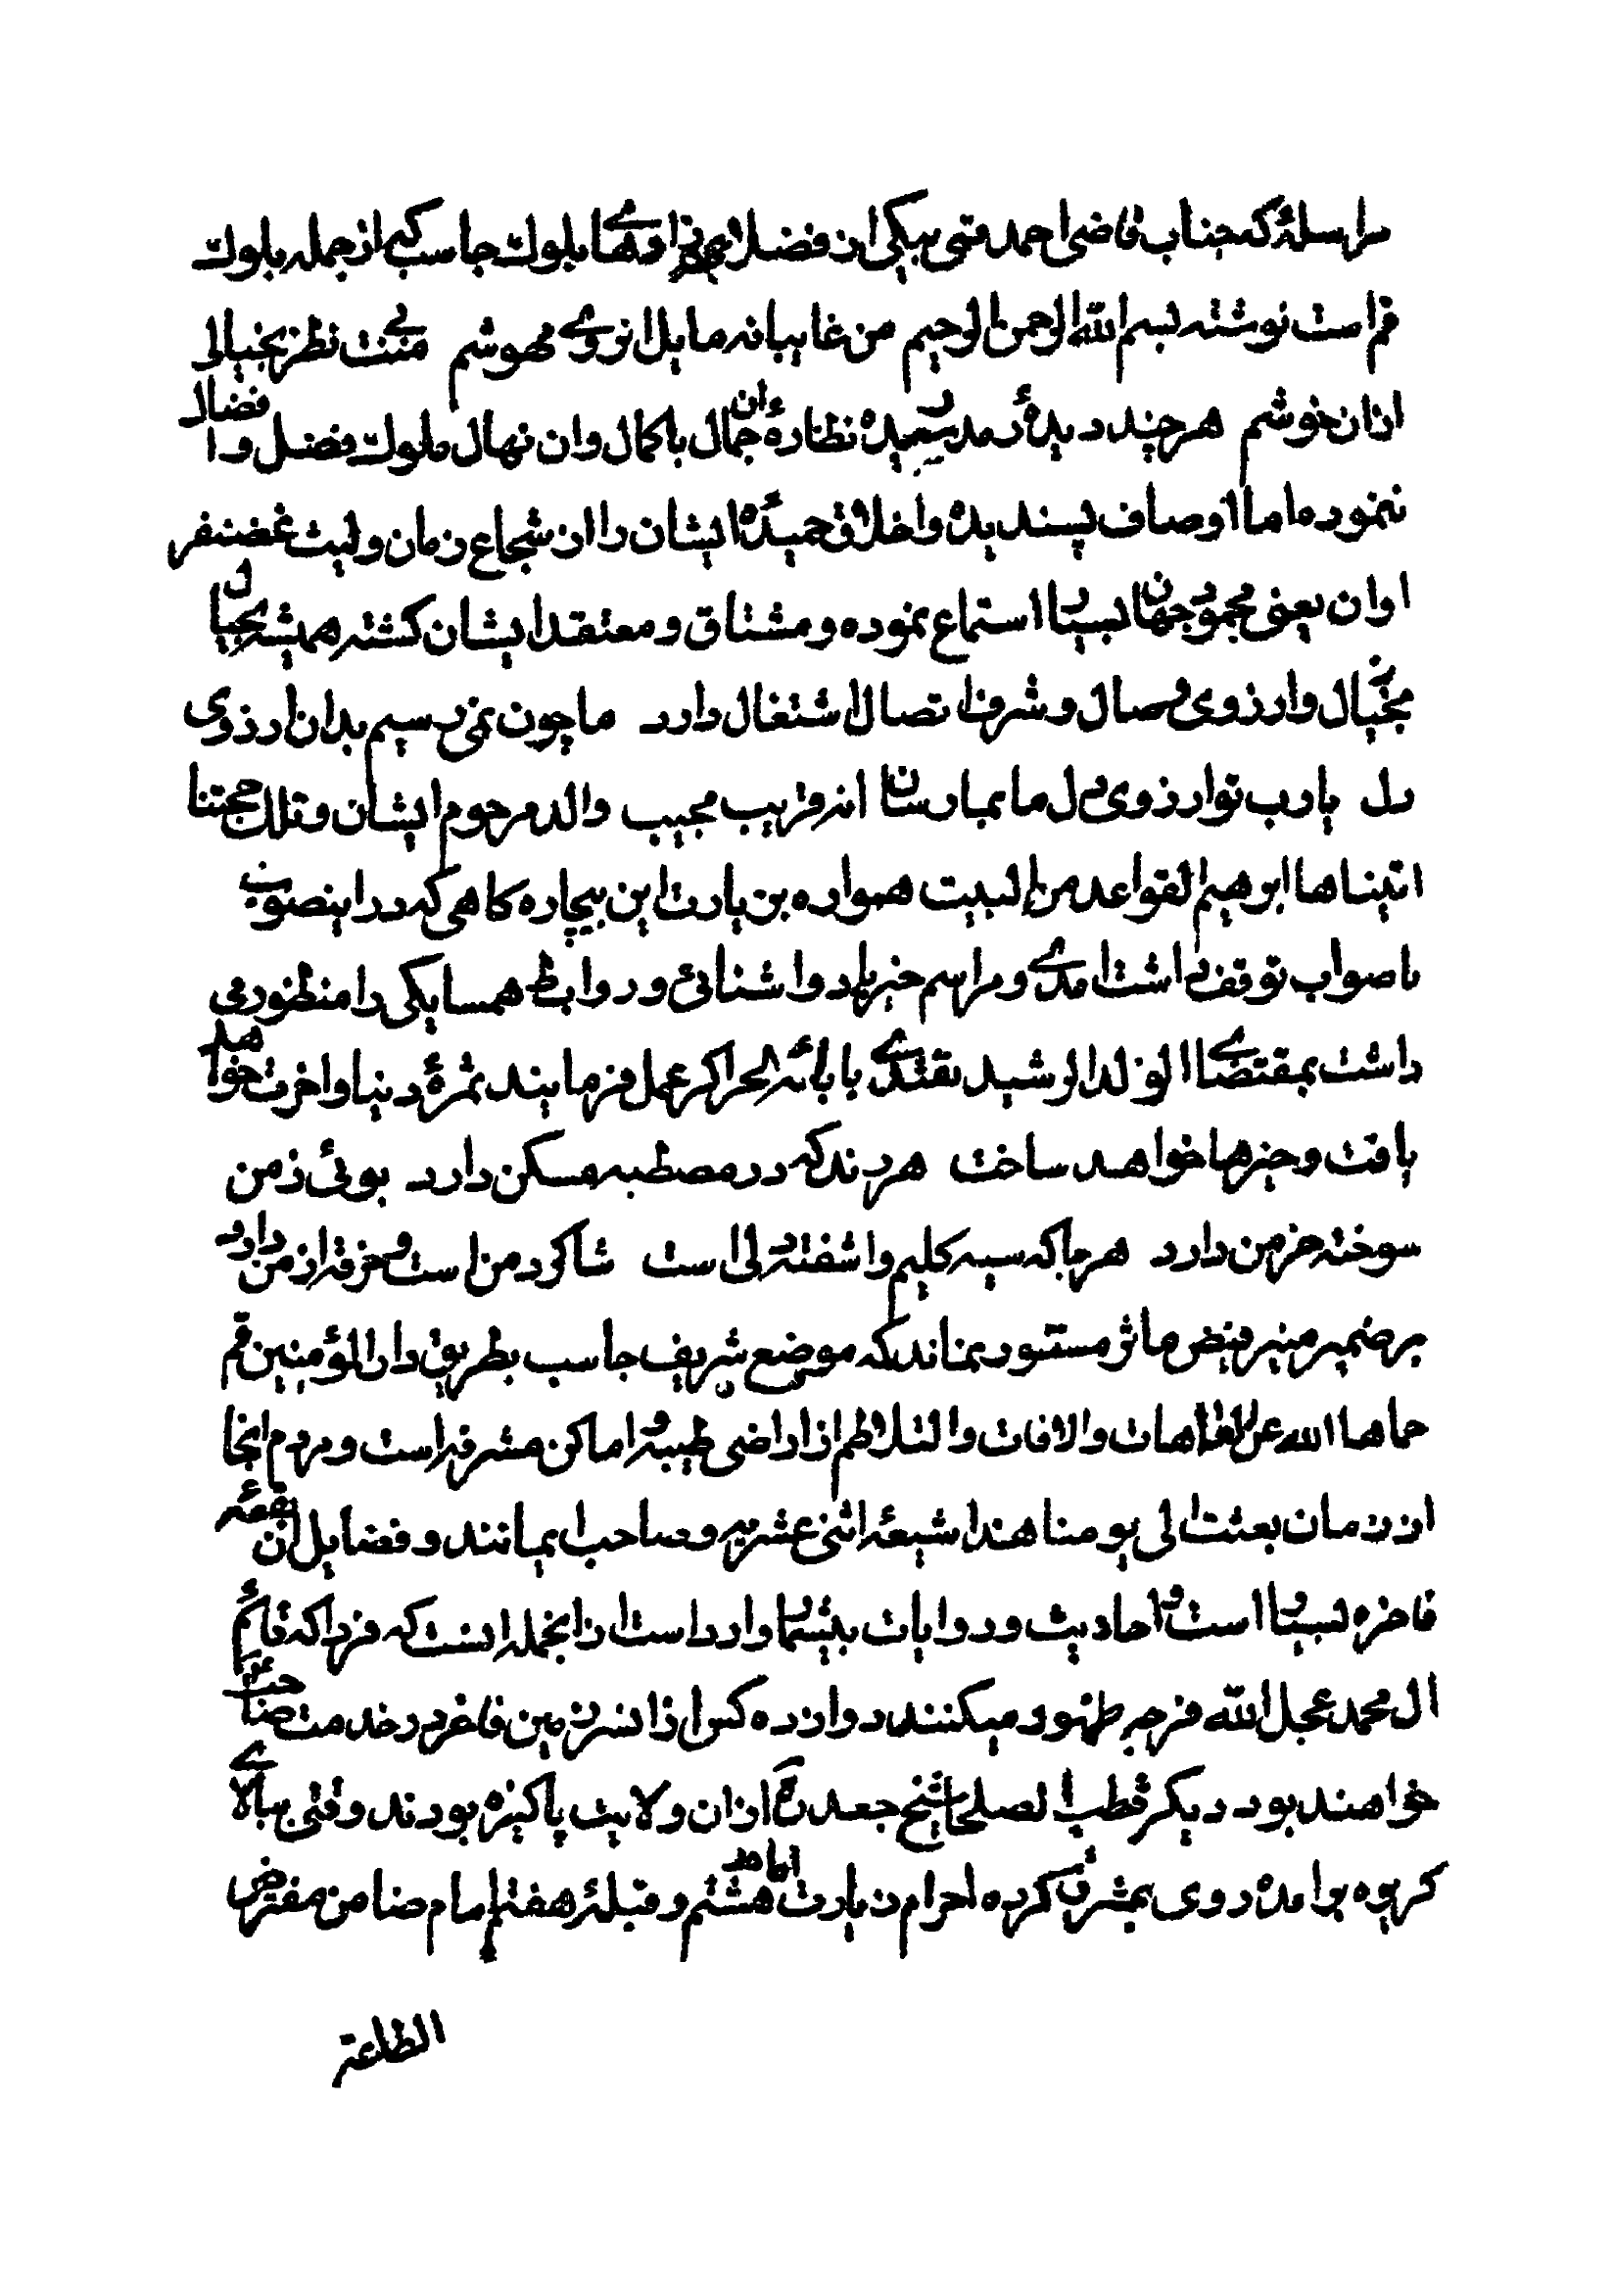 مراسلهٔ که جناب قاضی احمد قمی بیکی از فضلای نراق و دهها بلوک جاسب که از جمله بلوک
قم است نوشته بسم الله الرحمن الرحیم من غایبانه مایل انروی مهوشم بی منت نظر بخیالی
ازان خوشم هر چند دیدهٔ رمد رسیده نظارهٔ ان جمال باکمال وان نهال ملوک فضل و افضال
ننموده اما اوصاف پسندیده و اخلاق حمیدهٔ ایشان را ازن شجاع زمان و لیث غضنفر
اوان یعنی محمود جهان بسیار استماع نموده و مشتاق و معتقد ایشان کشته همیشه بخیال
بخیال وارزوی وصال و شرف اتصال اشتغال دارد ما چون نمی رسیم بدان ارزوی
دل یارب تو ارزوی دل ما بما رسان انه قریب مجیب والد مرحوم ایشان و تلک حجتنا
اتیناها ابرهیم القواعد من البیت همواره بزیارت این بیچاره کاهی که دراینصوب
باصواب توقف داشت امدی و مراسم خیرباد و اشنائی و روابط همسایکی را منظور می
داشت بمقتضای الولد الرشید یقتدی بابائه الحر اکر عمل فرمایند ثمرهٔ دنیا و اخرت خواهد
یافت و خیرها خواهد ساخت هر رند که در مصطبه مسکن دارد بوئی زمن
سوخته خرمن دارد هرجا که سیه کلیم و اشفته دلی است شاکرد من است و خرقه از من دارد
بر ضمیر منیر فیض ماثر مستور نماند که موضع شریف جاسب بطریق دارالمؤمنین قم
حماها الله عن العاهات والافات والتلاطم از اراضی طیبه و اماکن مشرفه است و مردم انجا
از زمان بعثت الی یومنا هذا شیعهٔ اثنی عشریه و صاحب ایمانند و فضایل ان بقعهٔ
فاخره بسیار است و احادیث و روایات بیشمار وارد است ازانجمله انست که فردا که قائم
ال محمد عجل الله فرجه ظهور میکنند دوازده کس ازانسرزمین فاخر در خدمت حضرت
خواهند بود دیکر قطب الصلحا شیخ جعده ازان ولایت پاکیزه بودند وقتی ببالای
کریوه برامده روی بمشرق کرده احرام زیارت امام هشتم و قبلهٔ هفتم امام ضامن مفترض
الطاعة